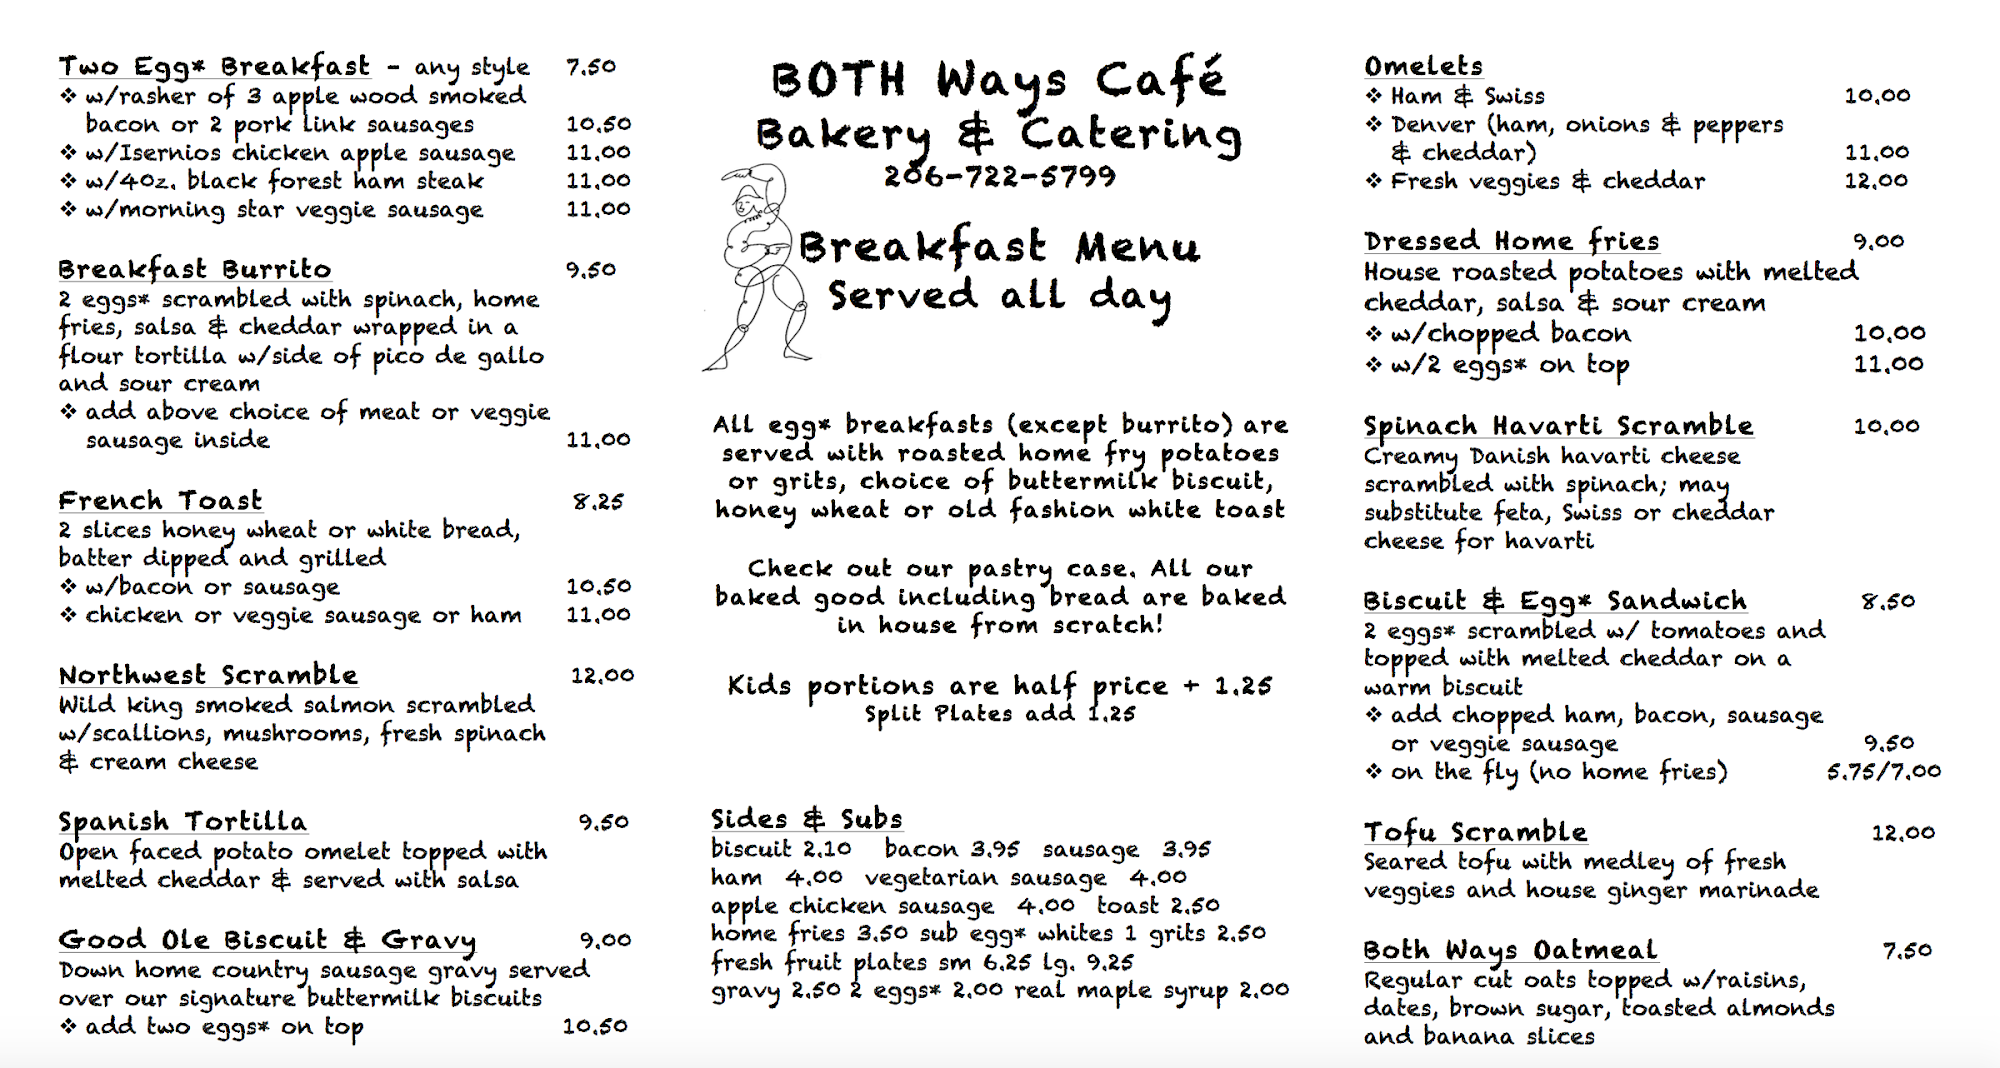 Two Egg* Breakfast - any style 7.50
❖ w/rasher of 3 apple wood smoked
bacon or 2 pork link sausages 10.50
❖ w/Isernios chicken apple sausage 11.00
❖ w/4oz. black forest ham steak 11.00
❖ w/morning star veggie sausage 11.00
Breakfast Burrito 9.50
2 eggs* scrambled with spinach, home
fries, salsa & cheddar wrapped in a
flour tortilla w/side of pico de gallo
and sour cream
❖ add above choice of meat or veggie
sausage inside 11.00
French Toast 8.25
2 slices honey wheat or white bread,
batter dipped and grilled
❖ w/bacon or sausage 10.50
❖ chicken or veggie sausage or ham 11.00
Northwest Scramble 12.00
Wild king smoked salmon scrambled
w/scallions, mushrooms, fresh spinach
& cream cheese
Spanish Tortilla 9.50
Open faced potato omelet topped with
melted cheddar & served with salsa
Good Ole Biscuit & Gravy 9.00
Down home country sausage gravy served
over our signature buttermilk biscuits
❖ add two eggs* on top 10.50
BOTH Ways Café
Bakery & Catering
206-722-5799
Breakfast Menu
Served all day
All egg* breakfasts (except burrito) are
served with roasted home fry potatoes
or grits, choice of buttermilk biscuit,
honey wheat or old fashion white toast
Check out our pastry case. All our
baked good including bread are baked
in house from scratch!
Kids portions are half price + 1.25
Split Plates add 1.25
Sides & Subs
biscuit 2.10 bacon 3.95 sausage 3.95
ham 4.00 vegetarian sausage 4.00
apple chicken sausage 4.00 toast 2.50
home fries 3.50 sub egg* whites 1 grits 2.50
fresh fruit plates sm 6.25 lg. 9.25
gravy 2.50 2 eggs* 2.00 real maple syrup 2.00
Omelets
❖ Ham & Swiss 10.00
❖ Denver (ham, onions & peppers
& cheddar) 11.00
❖ Fresh veggies & cheddar 12.00
Dressed Home fries 9.00
House roasted potatoes with melted
cheddar, salsa & sour cream
❖ w/chopped bacon 10.00
❖ w/2 eggs* on top 11.00
Spinach Havarti Scramble 10.00
Creamy Danish havarti cheese
scrambled with spinach; may
substitute feta, Swiss or cheddar
cheese for havarti
Biscuit & Egg* Sandwich 8.50
2 eggs* scrambled w/ tomatoes and
topped with melted cheddar on a
warm biscuit
❖ add chopped ham, bacon, sausage
or veggie sausage 9.50
❖ on the fly (no home fries) 5.75/7.00
Tofu Scramble 12.00
Seared tofu with medley of fresh
veggies and house ginger marinade
Both Ways Oatmeal 7.50
Regular cut oats topped w/raisins,
dates, brown sugar, toasted almonds
and banana slices